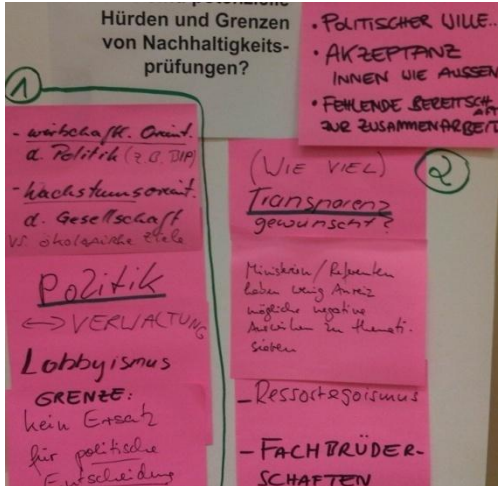 potenzielle
Hürden und Grenzen
von Nachhaltigkeits-
prüfungen?
• POLITISCHER WILLE..
• AKZEPTANZ
INNEN WIE AUSSEN
• FEHLENDE BEREITSCHAFT
ZUR ZUSAMMENARBEIT
1
- wirtschaftl. Orient.
d. Politik (z.B. BIP)
- Wachstumsorient.
d. Gesellschaft
vs. ökologische Ziele
Politik
<-> VERWALTUNG
Lobbyismus
GRENZE:
kein Ersatz
für politische
Entscheidung
2
(WIE VIEL)
Transparenz
gewünscht?
Ministerien/Referenten
haben wenig Anreiz
mögliche negative
Auswirken zu themati-
sieren
- Ressortegoismus
- FACHBRÜDER-
SCHAFTEN